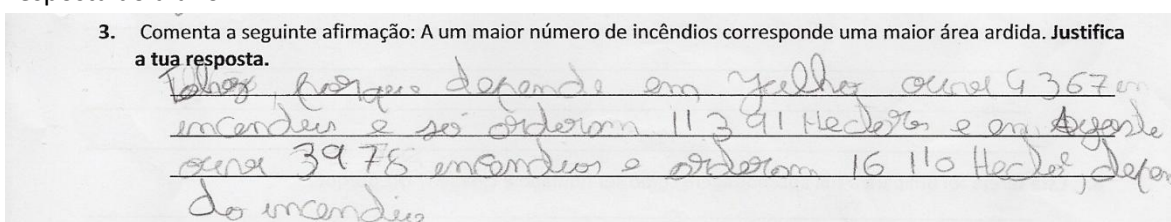 3. Comenta a seguinte afirmação: A um maior número de incêndios corresponde uma maior área ardida. Justifica
a tua resposta.
porque depende em julho ouve 4367 em
incendeus e só arderam 11391 Hectares e em Agosto
ouve 3978 incendios e arderam 16110 Hecta, depen
do incendio